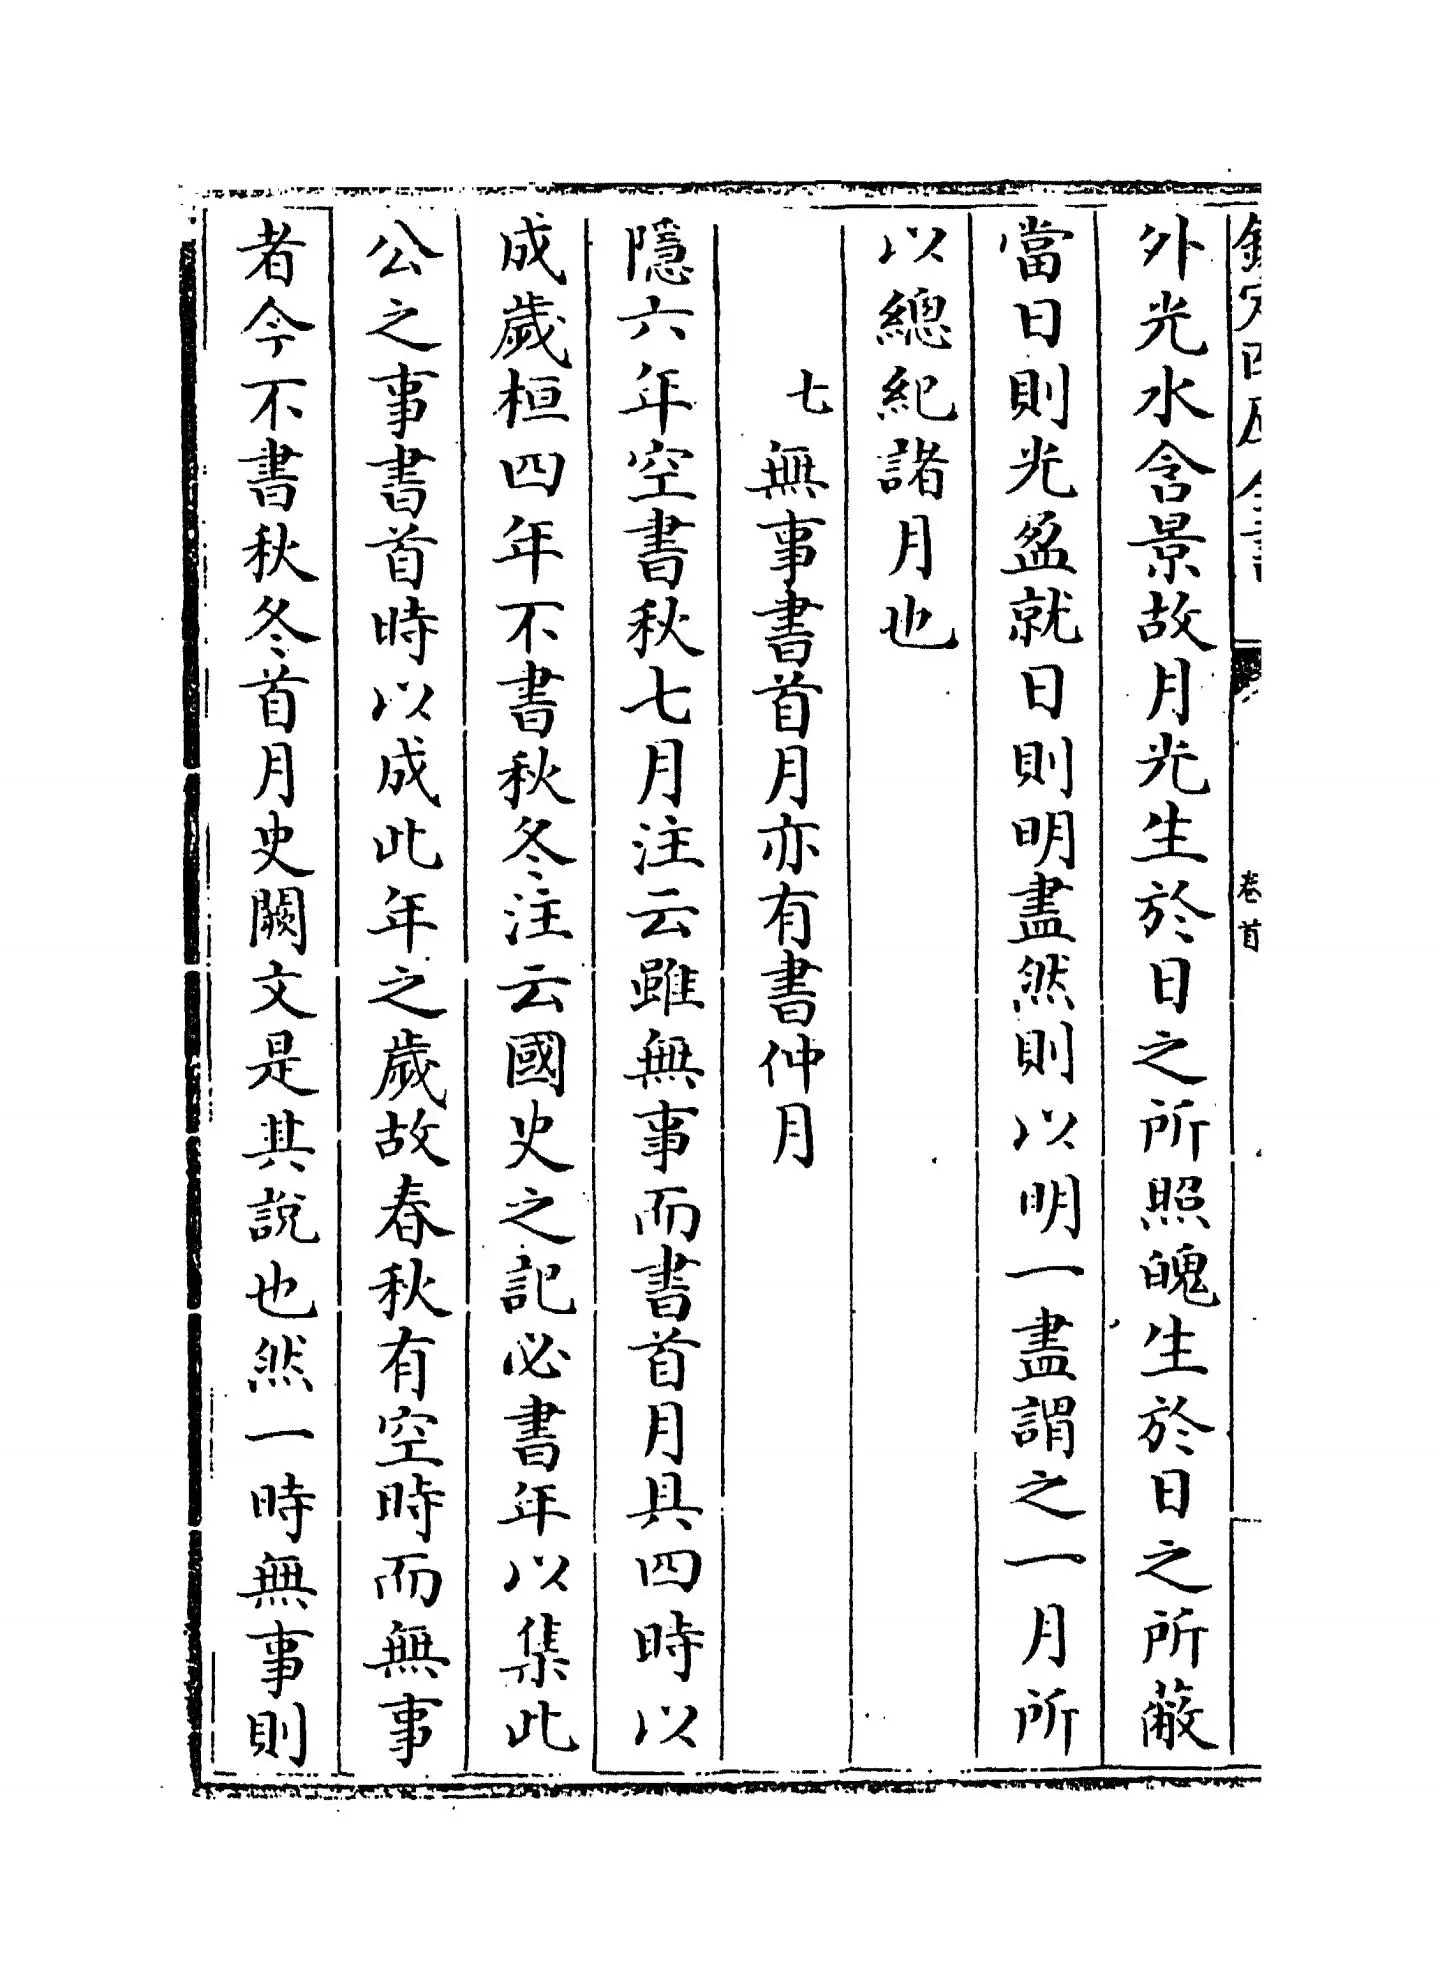 欽定四庫全書
卷首
外光水含景故月光生於日之所照魄生於日之所蔽
當日則光盈就日則明盡然則以明一盡謂之一月所
以總紀諸月也
七無事書首月亦有書仲月
隱六年空書秋七月注云雖無事而書首月具四時以
成歲桓四年不書秋冬注云國史之記必書年以集此
公之事書首時以成此年之歲故春秋有空時而無事
者今不書秋冬首月史闕文是其說也然一時無事則